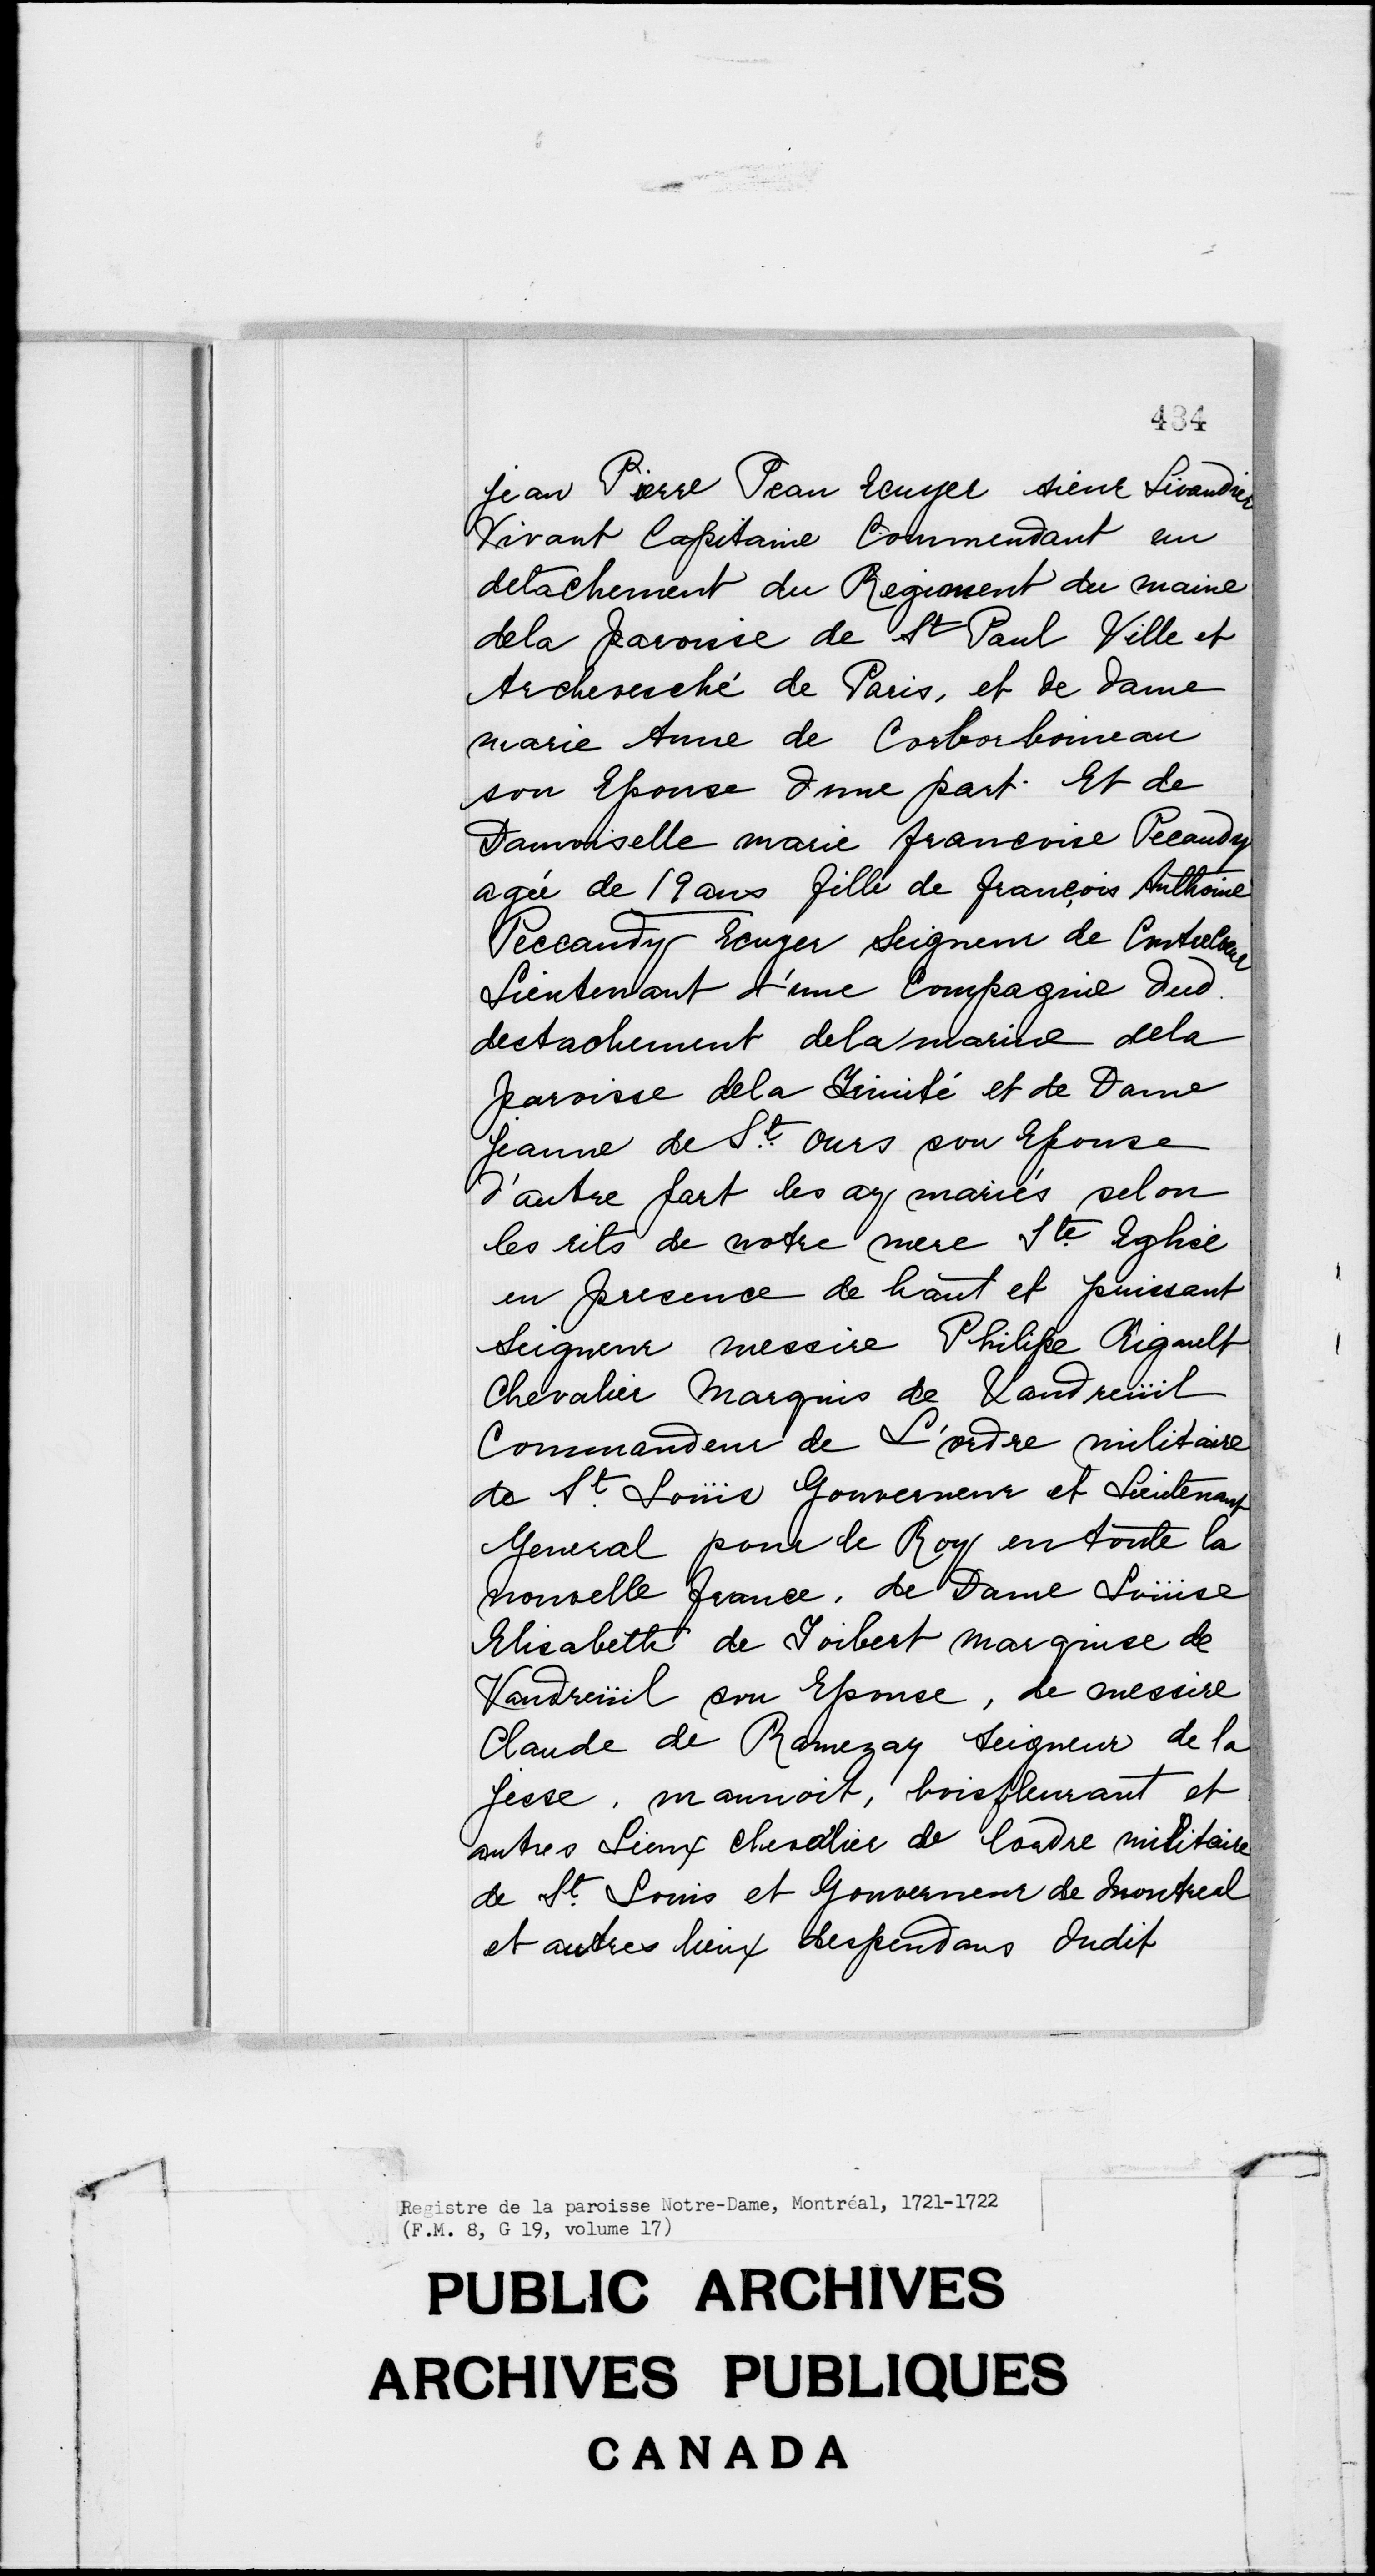 434
Jean Pierre Pean Ecuyer sieur Livaudier
Vivant Capitaine Commendant un
detachement du Regiment du maine
dela paroisse de St Paul Ville et
Archevesché de Paris, et de dame
marie Anne de Corborboineau
son Epouse d'une part. Et de
Damoiselle marie françoise Pecaudy
agée de 19 ans fille de françois Anthoine
Peccaudy Ecuyer Seigneur de Contrecoeur
Lieutenant d'une Compagnie dud.
destachement dela marine dela
paroisse dela Trinité et de Dame
Jeanne de St. Ours son Epouse
d'autre part les ay mariés selon
les rits de notre mere Ste Eglise
en presence de haut et puissant
Seigneur messire Philipe Rigault
Chevalier Marquis de Vaudreüil
Commandeur de L'ordre militaire
de St. Loüis Gouverneur et Lieutenant
General pour le Roy en toute la
nouvelle france, de Dame Loüise
Elisabeth de Joibert marquise de
Vaudreüil son Epouse, de messire
Claude de Ramezay Seigneur de la
Jesse, mannoit, boisfleurant et
autres Lieux chevalier de lordre militaire
de St. Louis et Gouverneur de Montreal
et autres lieux despendans dudit
Registre de la paroisse Notre-Dame, Montréal, 1721-1722
(F.M. 8, G 19, volume 17)
PUBLIC ARCHIVES
ARCHIVES PUBLIQUES
CANADA